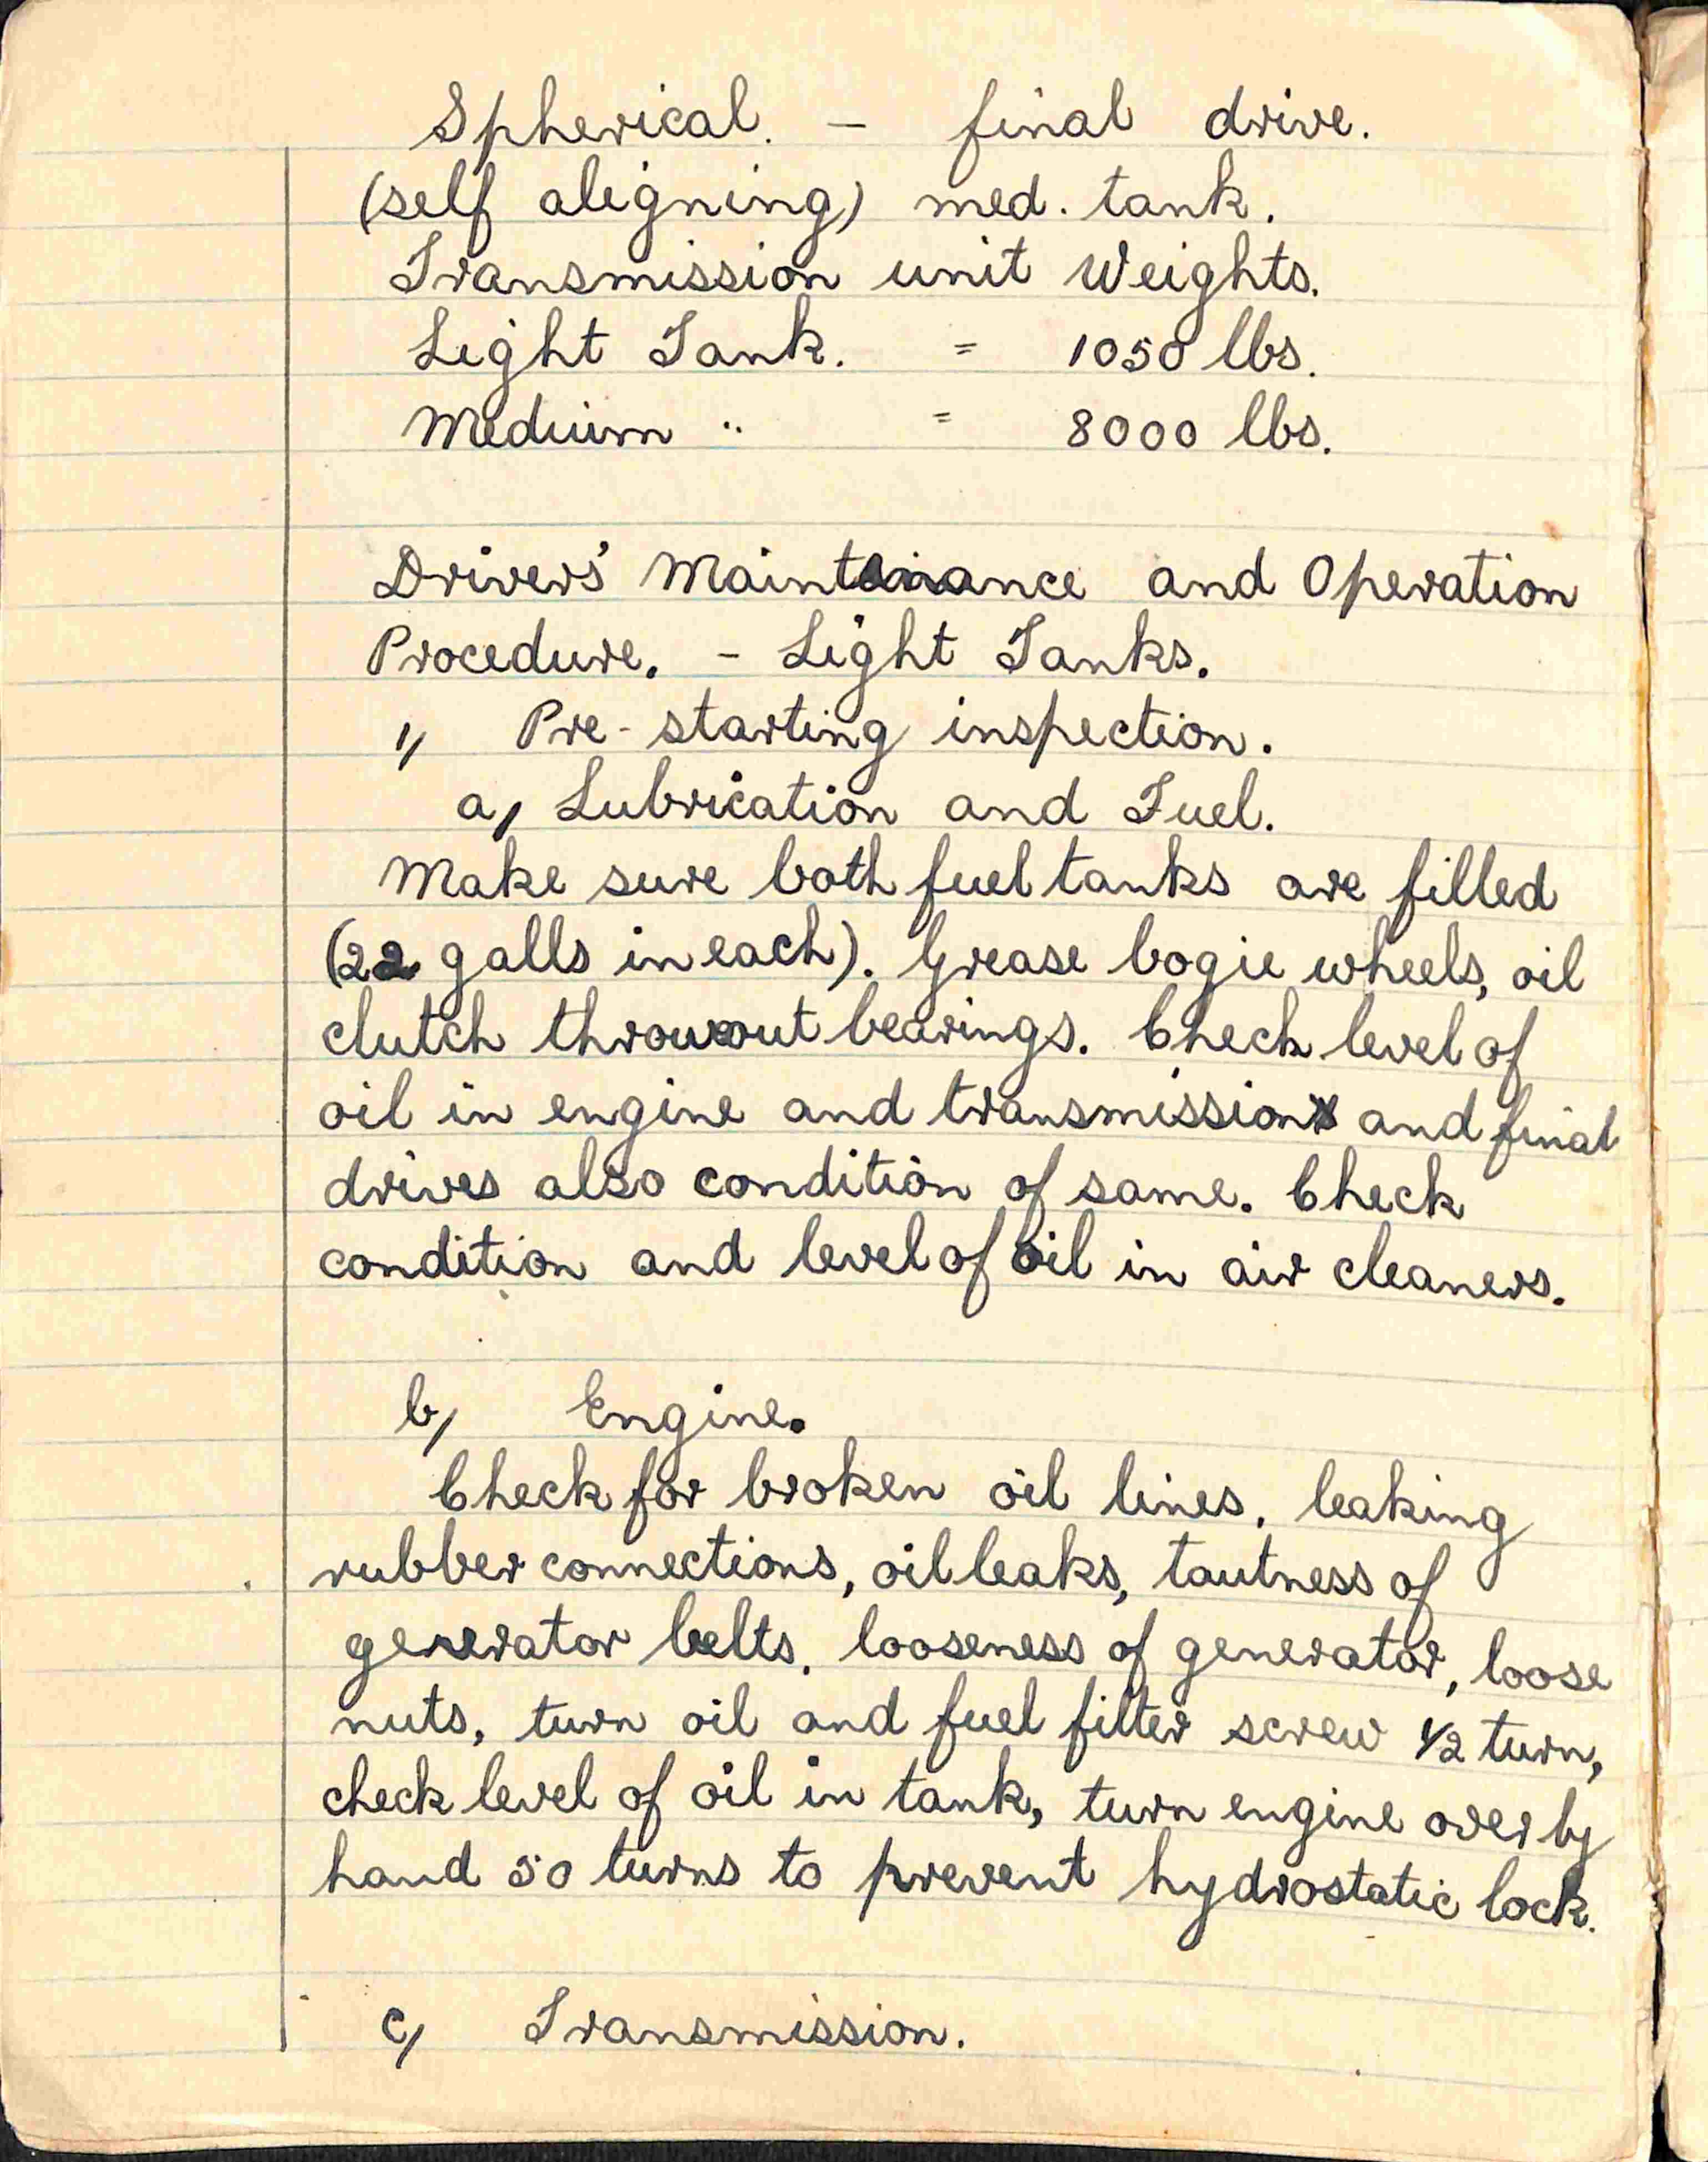 Spherical. - final drive.
(self aligning) med. tank.
Transmission unit Weights.
Light Tank. = 1050 lbs.
Medium " = 8000 lbs.
Drivers' Maintenance and Operation
Procedure. - Light Tanks.
1, Pre-starting inspection.
a, Lubrication and Fuel.
Make sure both fuel tanks are filled
(22 galls in each). Grease bogie wheels, oil
clutch throwout bearings. Check level of
oil in engine and transmission and final
drives also condition of same. Check
condition and level of oil in air cleaners.
b, Engine.
Check for broken oil lines, leaking
rubber connections, oil leaks, tautness of
generator belts, looseness of generator, loose
nuts, turn oil and fuel filter screw 1/2 turn,
check level of oil in tank, turn engine over by
hand 50 turns to prevent hydrostatic lock.
c, Transmission.